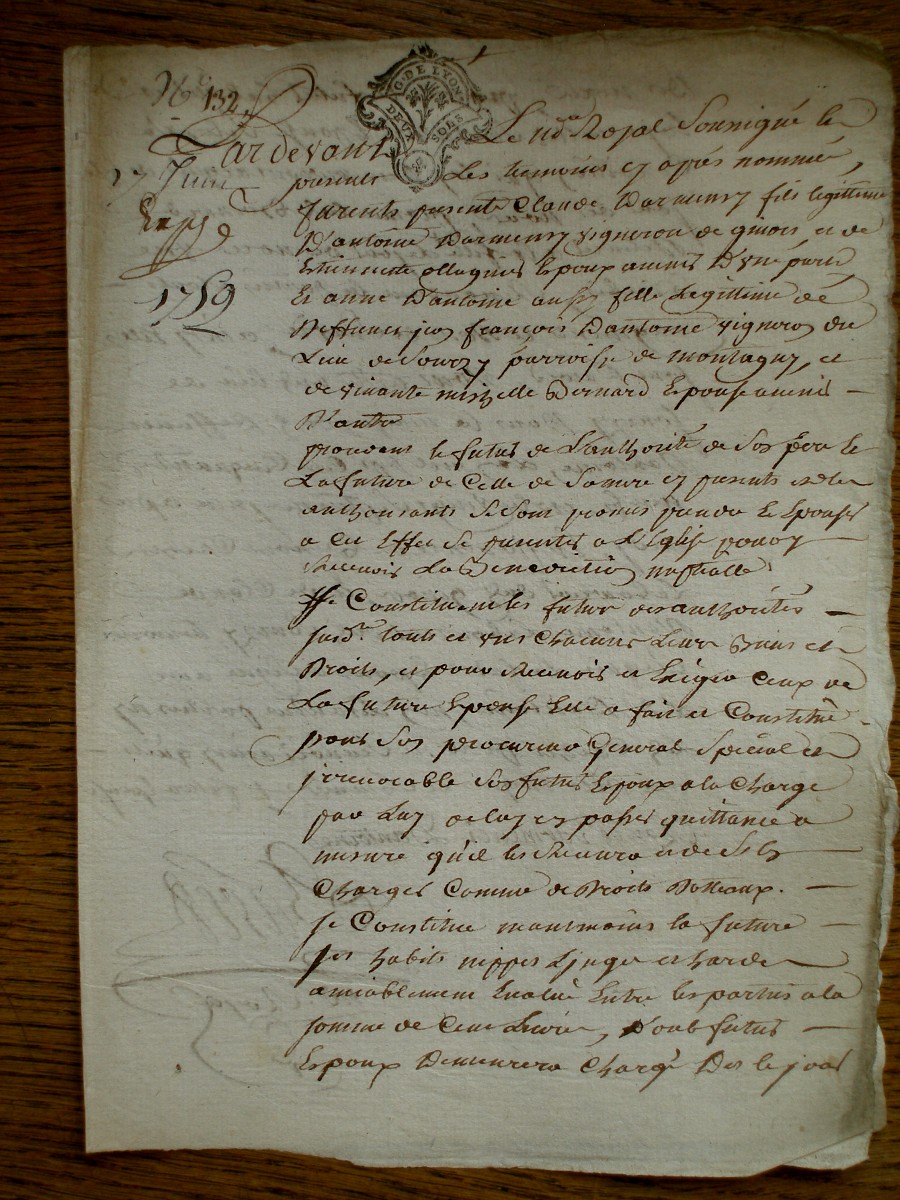 N° 132
G. DE LYON
DEUX SOLS
Pardevant Le no.re Royal Soussigné le
17 Juin
presents Les temoins cy aprés nommé
Expé
furents presents Claude Darmensy fils legittime
D'antoine Darmensy vigneron de et de
Ethiennette ollagnier Epoux aunis D'une part
1759
Et anne D'antoine aussy fille Legittime de
Deffunct jean françois D'antoine vigneron du
Lieu de Sourzy parroisse de montagny, et
de vivante mishelle Bernard Epouse aunis
D'autre
procedant le futur de L'authorité de Son pere Et
La future de Celle de Sa mere cy presents et les
authorisants Se Sont promis prendre Et Epouser
a Cet Effet Se presenter a L'Eglise pour y
Recevoir La Benediction nuptialle
Se Constituent les futur des authorités
susd.te touts et uns Chacuns Leurs Biens et
Droits, et pour Recevoir et Exiger Ceux de
La future Epouse Elle a fait et Constitué
pour Son procureur General Special et
irrevocable Son futur Epoux a la Charge
par Luy de Luy en passer quittance a
mesure qu'il les Recevra et de S'en
Charger Comme de Droits Dottaux.
Se Constitue neantmoins la future
Ses habits nippes Linge et hardes
amiablement Evalué Entre les parties a la
somme de Cent Livres, D'ont futur
Epoux Demeurera Chargé Des le jour